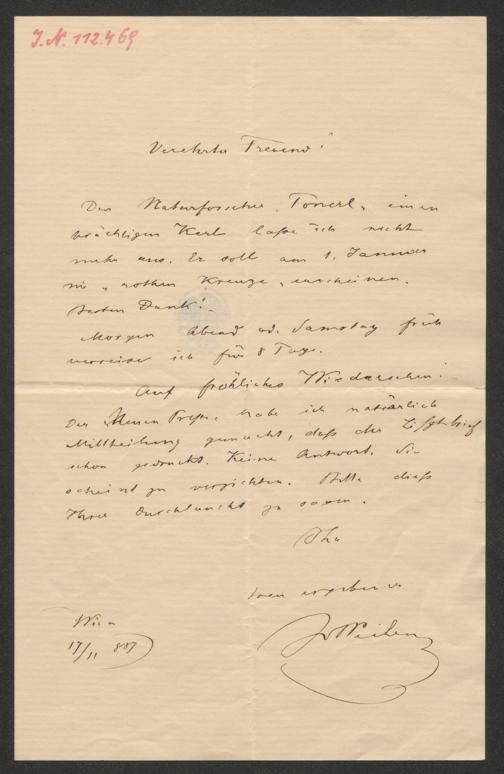 J. N. 112.469
Verehrter Freund!
Den Naturforscher, Tonerl, einen
prächtigen Kerl lasse ich nicht
mehr aus. Er soll am 1. Januar
im "rothen Kreuze" erscheinen.
Besten Dank!
Morgen Abend od. Samstag früh
verreise ich für 8 Tage.
Auf fröhliches Wiedersehen!
Der Neuen Presse habe ich natürlich
Mittheilung gemacht, daß der
schon gedruckt. Keine Antwort. Sie
scheint zu verzichten. Bitte dieß
Ihrer Durchlaucht zu sagen.
Ihr
treu ergebener
Wien
17/11 887
JvWeilen